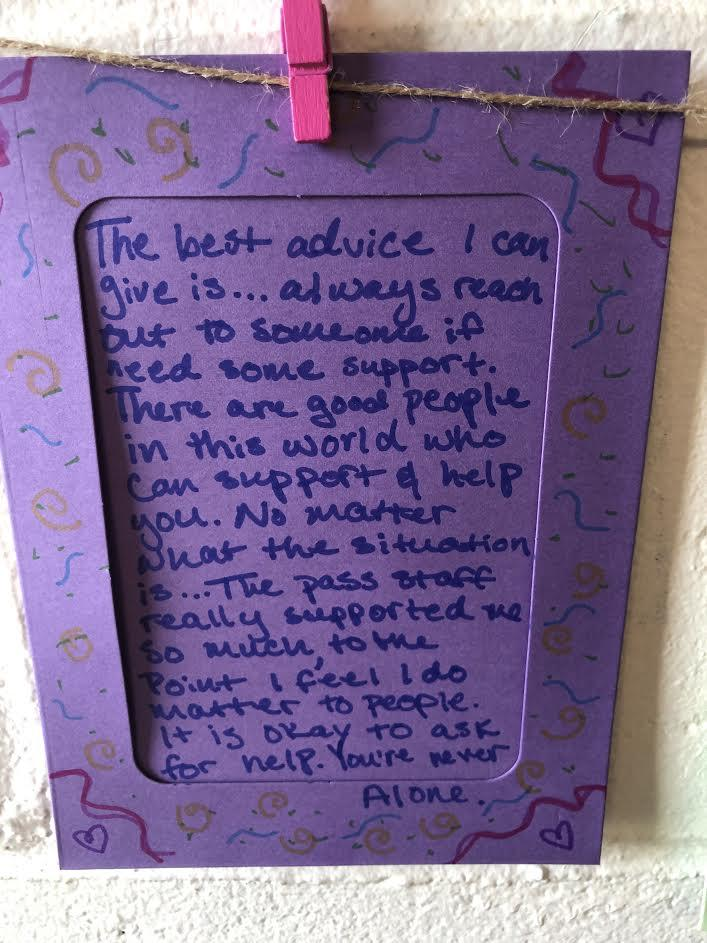 The best advice I can
give is... always reach
out to someone if
need some support.
There are good people
in this world who
can support & help
you. No matter
what the situation
is...The pass staff
really supported me
so much, to the
point I feel I do
matter to people.
It is okay to ask
for help. You're never
Alone.